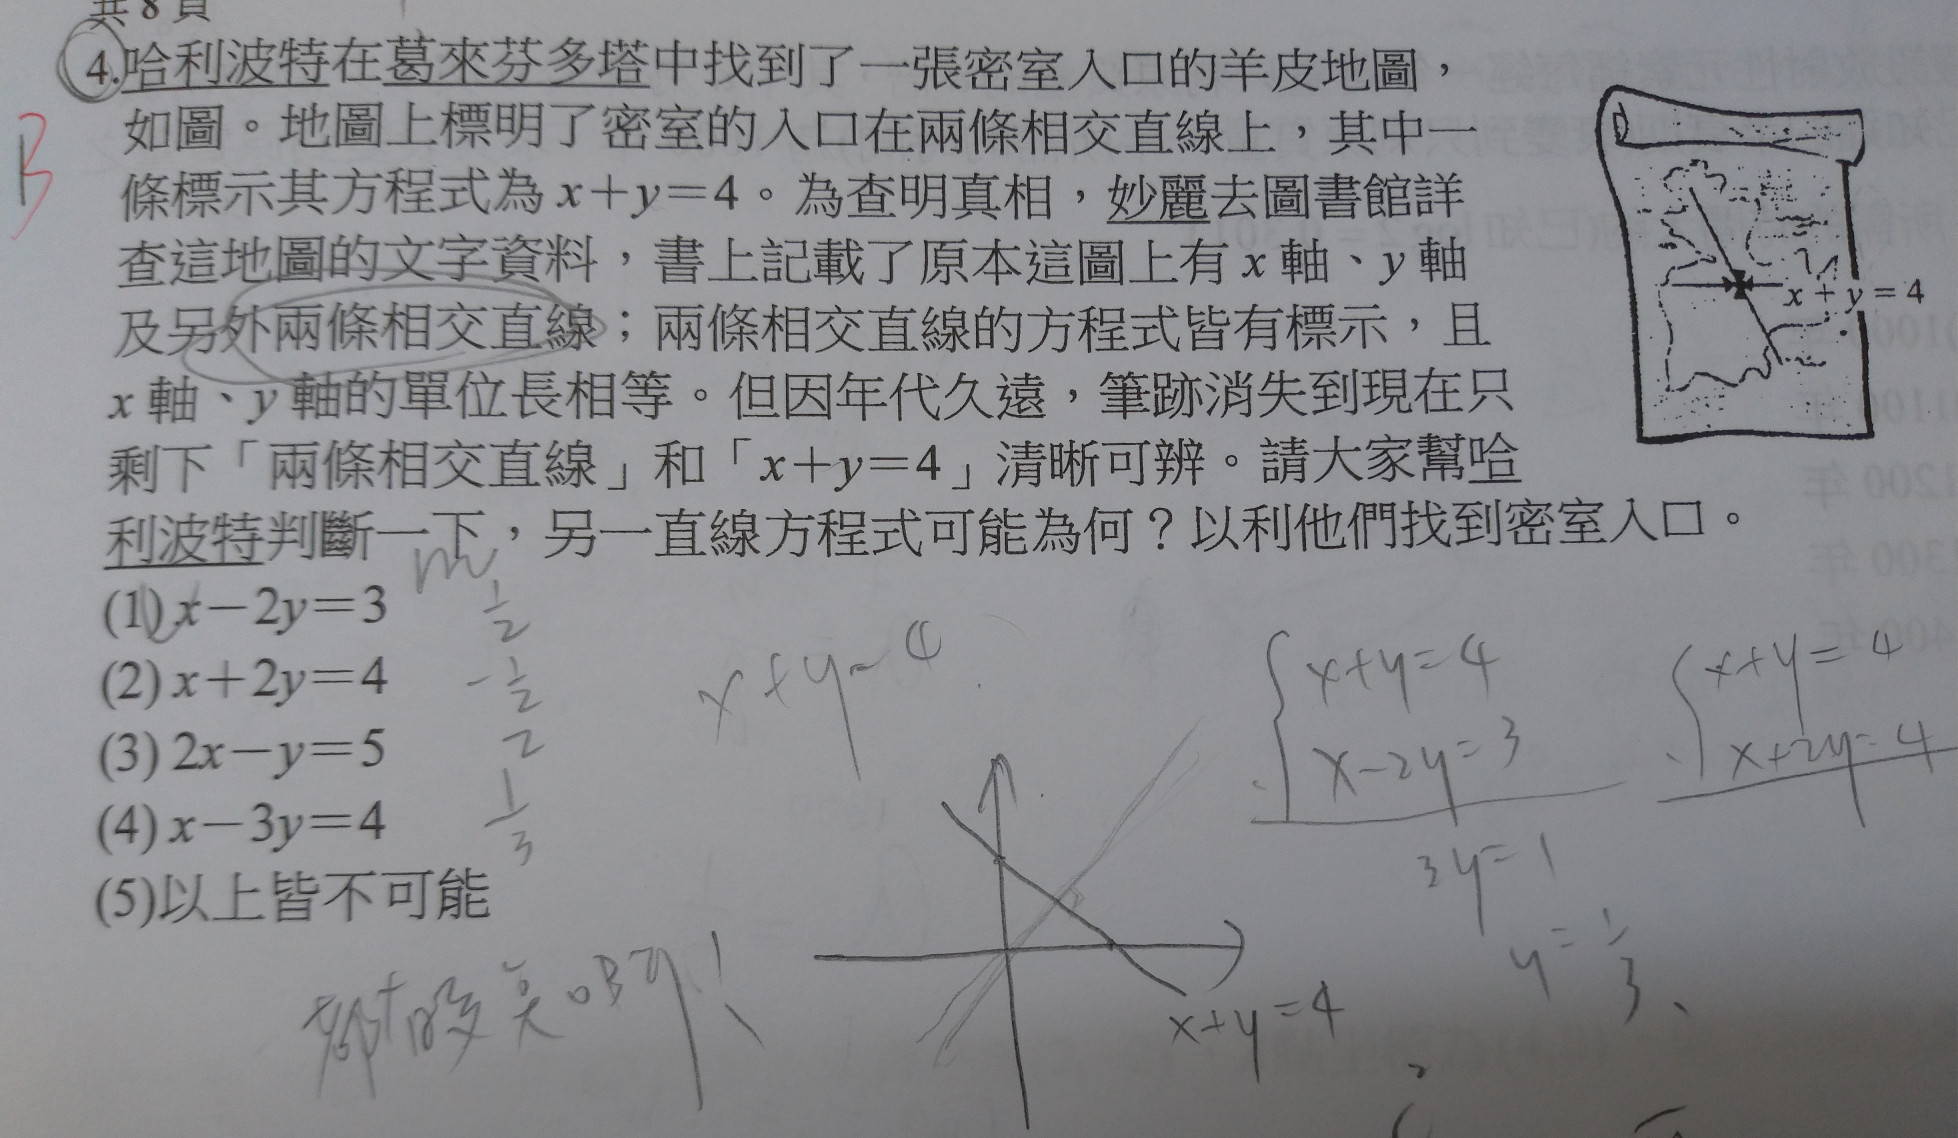 共8頁
4.哈利波特在葛來芬多塔中找到了一張密室入口的羊皮地圖，
如圖。地圖上標明了密室的入口在兩條相交直線上，其中一
條標示其方程式為 x+y=4。為查明真相，妙麗去圖書館詳
查這地圖的文字資料，書上記載了原本這圖上有 x 軸、y 軸
及另外兩條相交直線；兩條相交直線的方程式皆有標示，且
x 軸、y 軸的單位長相等。但因年代久遠，筆跡消失到現在只
剩下「兩條相交直線」和「x+y=4」清晰可辨。請大家幫哈
利波特判斷一下，另一直線方程式可能為何？以利他們找到密室入口。
x + y = 4
B
m
(1) x－2y=3
1/2
(2) x+2y=4
-1/2
(3) 2x－y=5
2
(4) x－3y=4
1/3
(5)以上皆不可能
x+y=4
x+y=4
x-2y=3
3y=1
y=1/3
x+y=4
x+2y=4
x+y=4